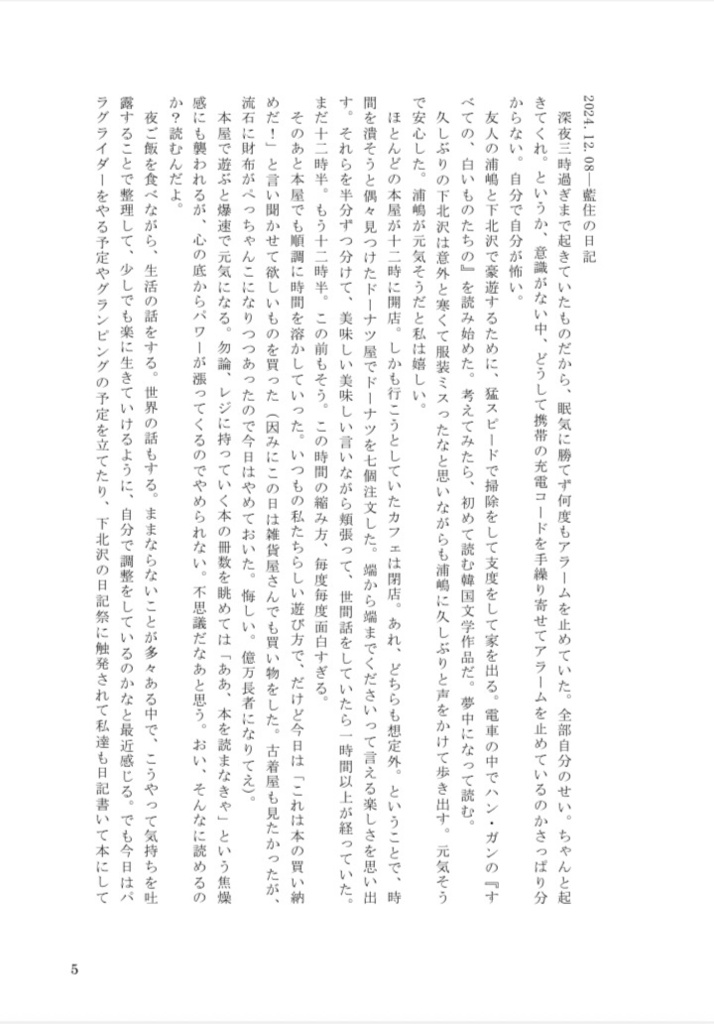 2024.12.08―藍住の日記
　深夜三時過ぎまで起きていたものだから、眠気に勝てず何度もアラームを止めていた。全部自分のせい。ちゃんと起
きてくれ。というか、意識がない中、どうして携帯の充電コードを手繰り寄せてアラームを止めているのかさっぱり分
からない。自分で自分が怖い。
　友人の浦嶋と下北沢で豪遊するために、猛スピードで掃除をして支度をして家を出る。電車の中でハン・ガンの『す
べての、白いものたちの』を読み始めた。考えてみたら、初めて読む韓国文学作品だ。夢中になって読む。
　久しぶりの下北沢は意外と寒くて服装ミスったなと思いながらも浦嶋に久しぶりと声をかけて歩き出す。元気そう
で安心した。浦嶋が元気そうだと私は嬉しい。
　ほとんどの本屋が十二時に開店。しかも行こうとしていたカフェは閉店。あれ、どちらも想定外。ということで、時
間を潰そうと偶々見つけたドーナツ屋でドーナツを七個注文した。端から端までくださいって言える楽しさを思い出
す。それらを半分ずつ分けて、美味しい美味しい言いながら頬張って、世間話をしていたら一時間以上が経っていた。
まだ十二時半。もう十二時半。この前もそう。この時間の縮み方、毎度毎度面白すぎる。
　そのあと本屋でも順調に時間を溶かしていった。いつもの私たちらしい遊び方で、だけど今日は「これは本の買い納
めだ！」と言い聞かせて欲しいものを買った（因みにこの日は雑貨屋さんでも買い物をした。古着屋も見たかったが、
流石に財布がぺっちゃんこになりつつあったので今日はやめておいた。悔しい。億万長者になりてえ）。
　本屋で遊ぶと爆速で元気になる。勿論、レジに持っていく本の冊数を眺めては「ああ、本を読まなきゃ」という焦燥
感にも襲われるが、心の底からパワーが漲ってくるのでやめられない。不思議だなあと思う。おい、そんなに読めるの
か？読むんだよ。
　夜ご飯を食べながら、生活の話をする。世界の話もする。ままならないことが多々ある中で、こうやって気持ちを吐
露することで整理して、少しでも楽に生きていけるように、自分で調整をしているのかなと最近感じる。でも今日はパ
ラグライダーをやる予定やグランピングの予定を立てたり、下北沢の日記祭に触発されて私達も日記書いて本にして
5